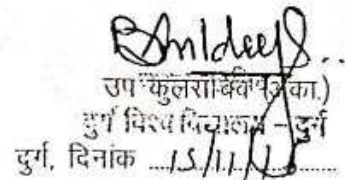 उप कुलसचिव (अका.)
दुर्ग विश्वविद्यालय – दुर्ग
दुर्ग, दिनांक 15/11/